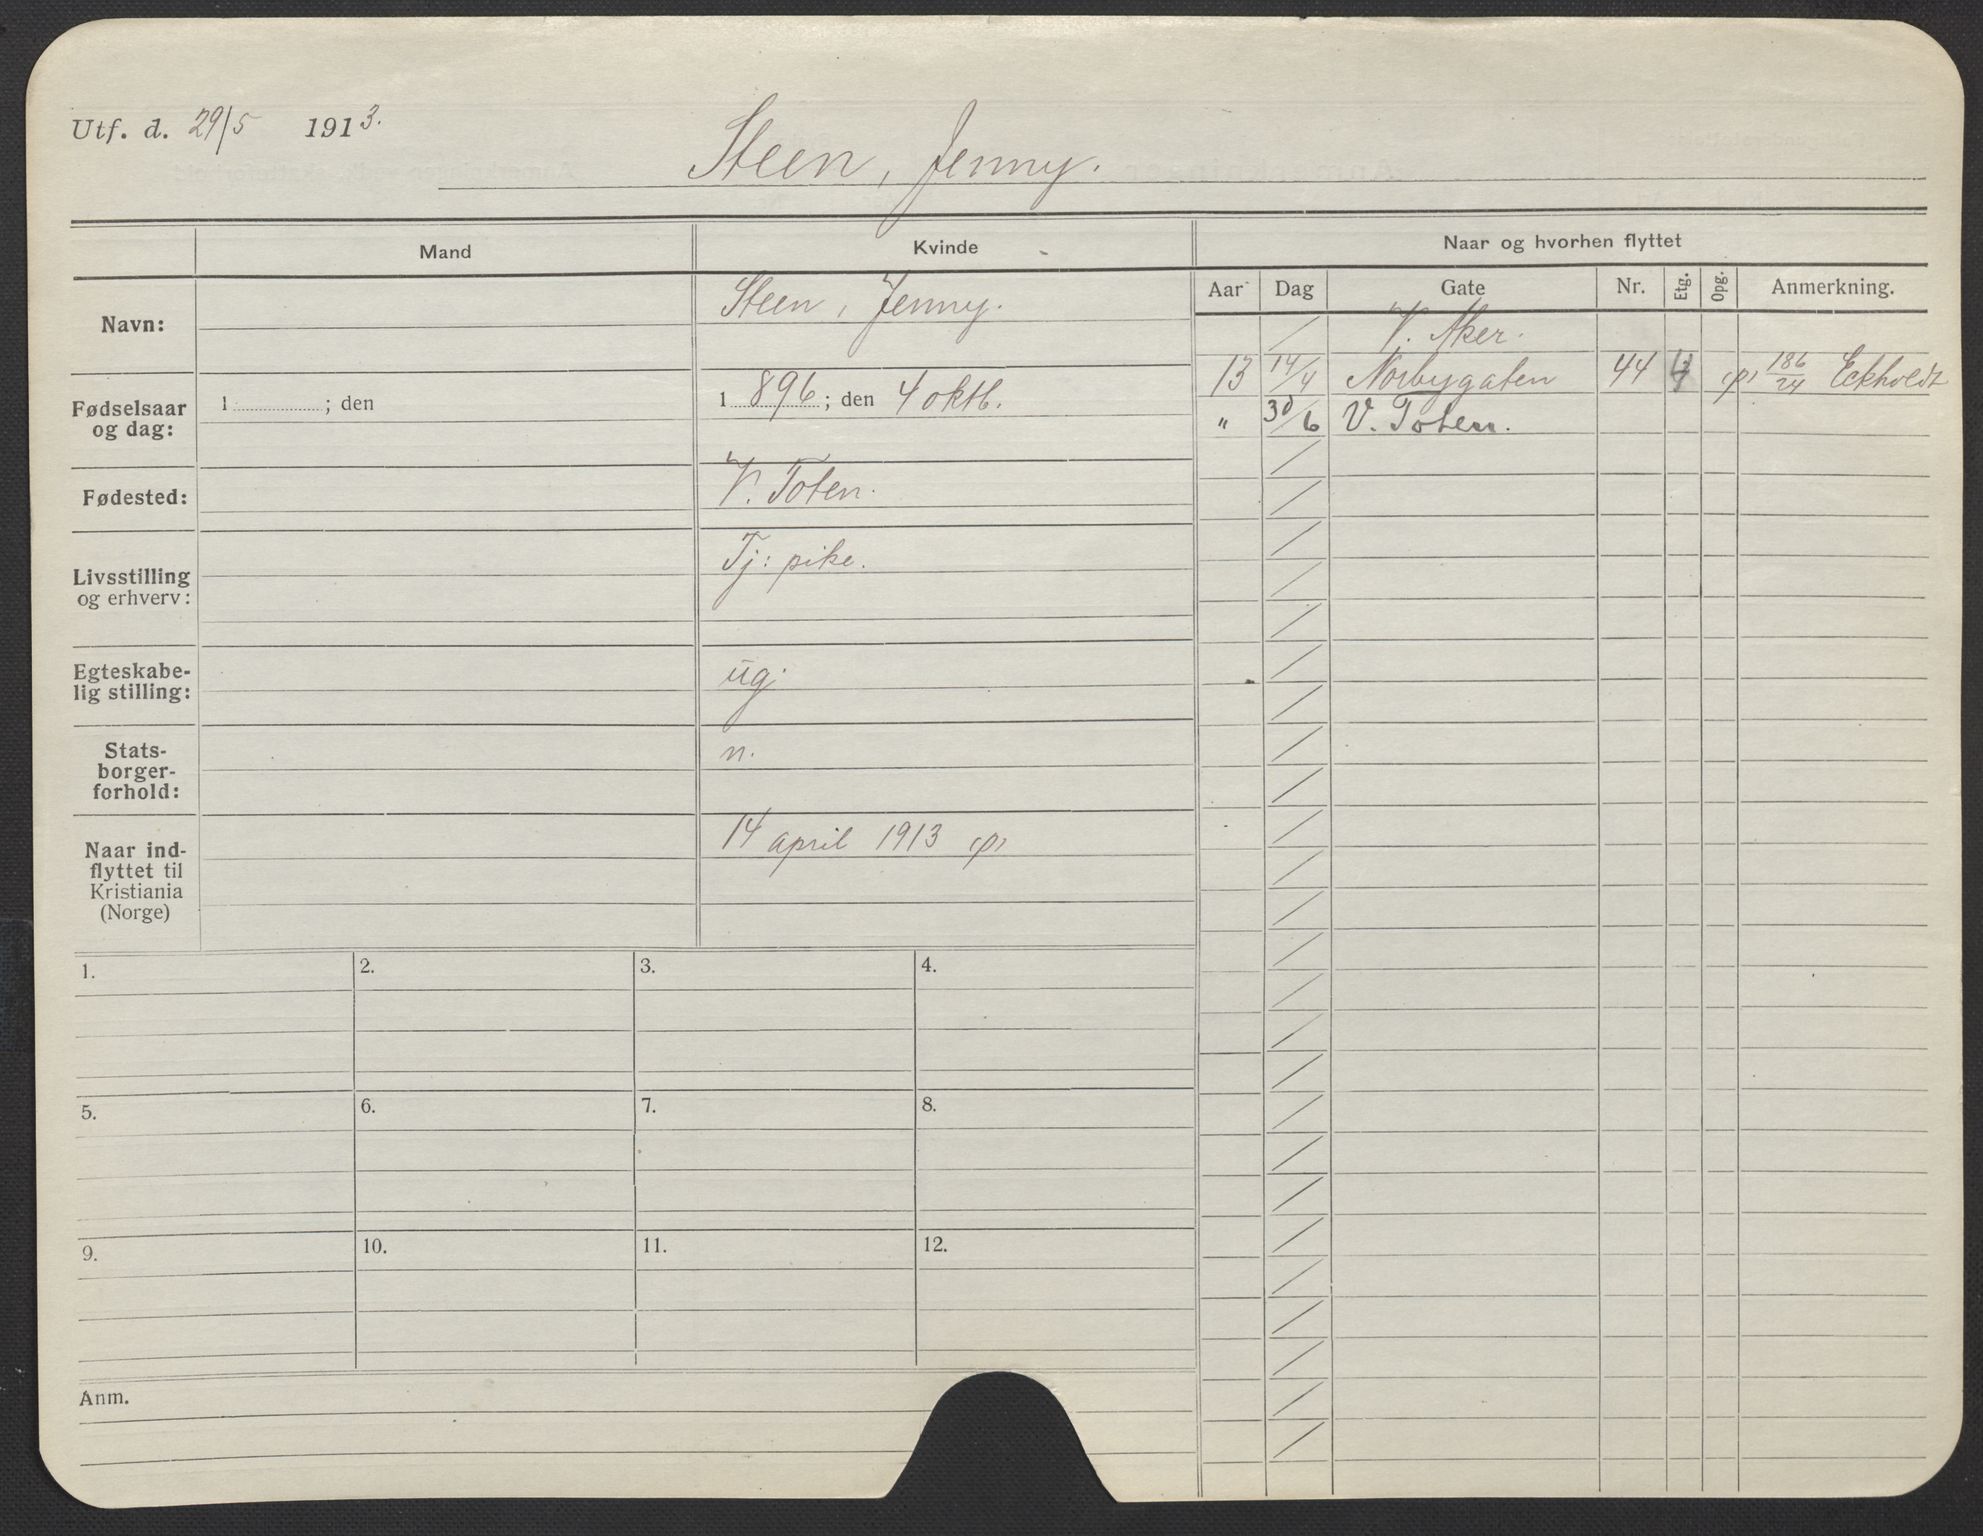 Utf. d. 29/5 1913.
Steen, Jenny.
Mand
Kvinde
Naar og hvorhen flyttet
Aar Dag Gate Nr. Etg. Opg. Anmerkning.
Navn:
Steen, Jenny.
V. Aker.
13 14/4 Norbygaten 44 (p) 186/24 Eckholdt
" 30/6 V. Toten.
Fødselsaar
og dag:
1 ; den
1 896 ; den 4 oktb.
Fødested:
V. Toten.
Livsstilling
og erhverv:
Tj: pike.
Egteskabe-
lig stilling:
ug.
Stats-
borger-
forhold:
n.
Naar ind-
flyttet til
Kristiania
(Norge)
14 april 1913 (p)
1. 2. 3. 4.
5. 6. 7. 8.
9. 10. 11. 12.
Anm.